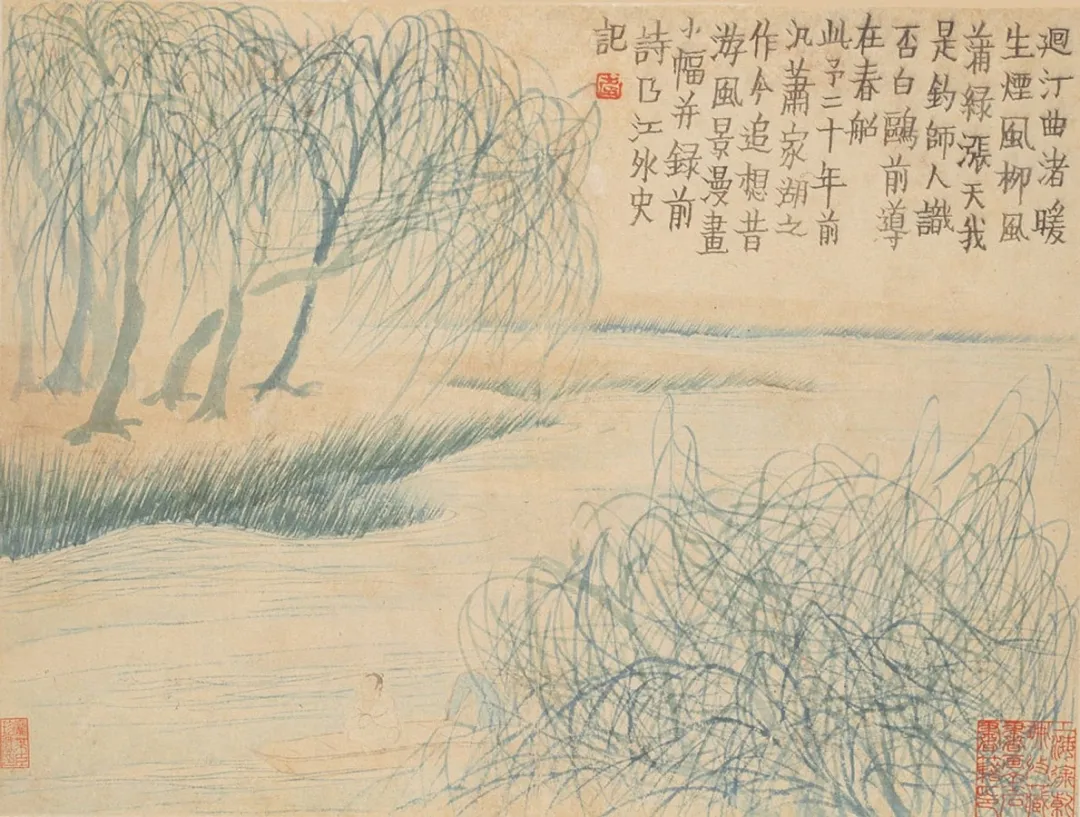 迴汀曲渚暖
生煙風柳風
蒲緑漲天我
是釣師人識
否白鷗前導
在春船
此予二十年前
汎蕭家湖之
作今追想昔
游風景漫畫
小幅并録前
詩曲江外史
記